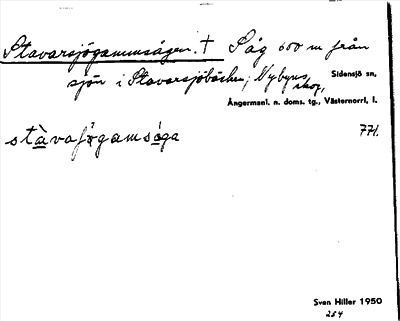 Stavarsjögammsågen. † Såg 600 m från
sjön i Stavarsjöbäcken; Nybyns skog, Sidensjö sn,
Ångermanl. n. doms. tg., Västernorrl. l.
stàvaʃögamsåga 771.
Sven Hiller 1950
254